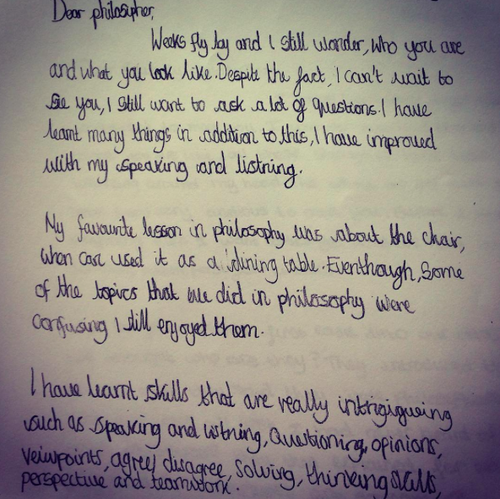 Dear philosipher,
Weeks fly by and I still wonder, who you are
and what you look like. Despite the fact, I can't wait to
see you, I still want to ask a lot of questions. I have
learnt many things in addition to this, I have improved
with my speaking and listning.
My favourite lesson in philosophy was about the chair,
when Carl used it as a dining table. Eventhough, some
of the topics that we did in philosophy were
confusing I still enjoyed them.
I have learnt skills that are really intrigigueing
such as speaking and listning, Questioning, opinions,
veiwpoints, agree/disagree, solving, thinking skills,
perspective and teamwork.